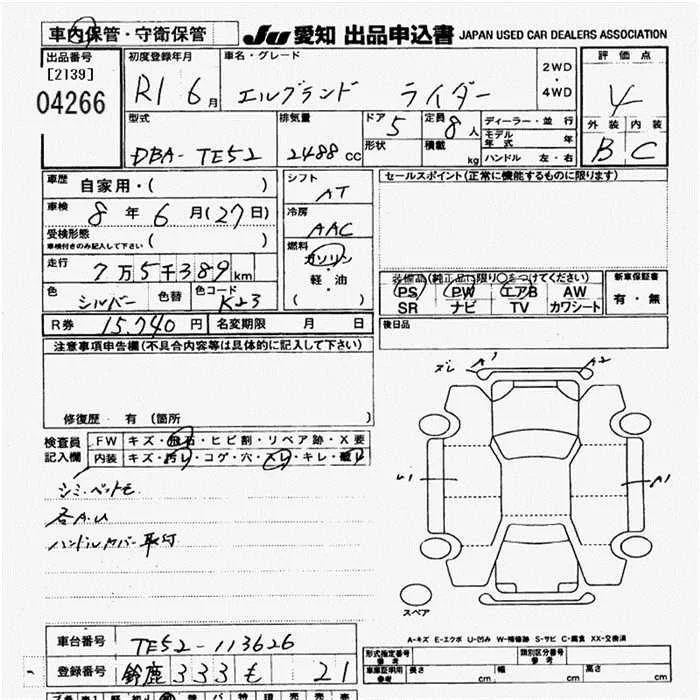 車内保管・守衛保管
JU 愛知 出品申込書 JAPAN USED CAR DEALERS ASSOCIATION
出品番号
[2139]
04266
初度登録年月
R1 6月
車名・グレード
エルグランド ライダー
2WD
・
4WD
評価点
4
外装 内装
B C
型式
DBA-TE52
排気量
2488cc
ドア
5
形状
定員
8人
積載
kg
ディーラー・並行
モデル年式 年
ハンドル 左・右
車歴
自家用・( )
車検
8年6月(27日)
受検形態
車検付きのみ記入して下さい ( )
走行
7万5千389km
色
シルバー
色替
色コード
K23
シフト
AT
冷房
AAC
燃料
ガソリン
・
軽・油
( )
セールスポイント(正常に機能するものに限ります)
装備品(純正品に限り○をつけてください)
PS PW エアB AW
SR ナビ TV カワシート
新車保証書
有・無
R券 15,740円
名変期限 月 日
後日品
注意事項申告欄(不具合内容等は具体的に記入して下さい)
修復歴・有(箇所 )
検査員
記入欄
FW キズ・飛石・ヒビ割・リペア跡・X要
内装 キズ・汚レ・コゲ・穴・スレ・キレ・
シミ、ペットモ
各A.U
ハンドルカバー取付
ズレ A1 A2
U1
A1
スペア
A-キズ E-エクボ U-凹み W-補修跡 S-サビ C-腐食 XX-交換済
車台番号 TE52-113626
登録番号 鈴鹿 333 も 21
形式指定番号
参考
類別区分番号
参考
車庫証明用
参考
長さ cm
幅 cm
高さ cm